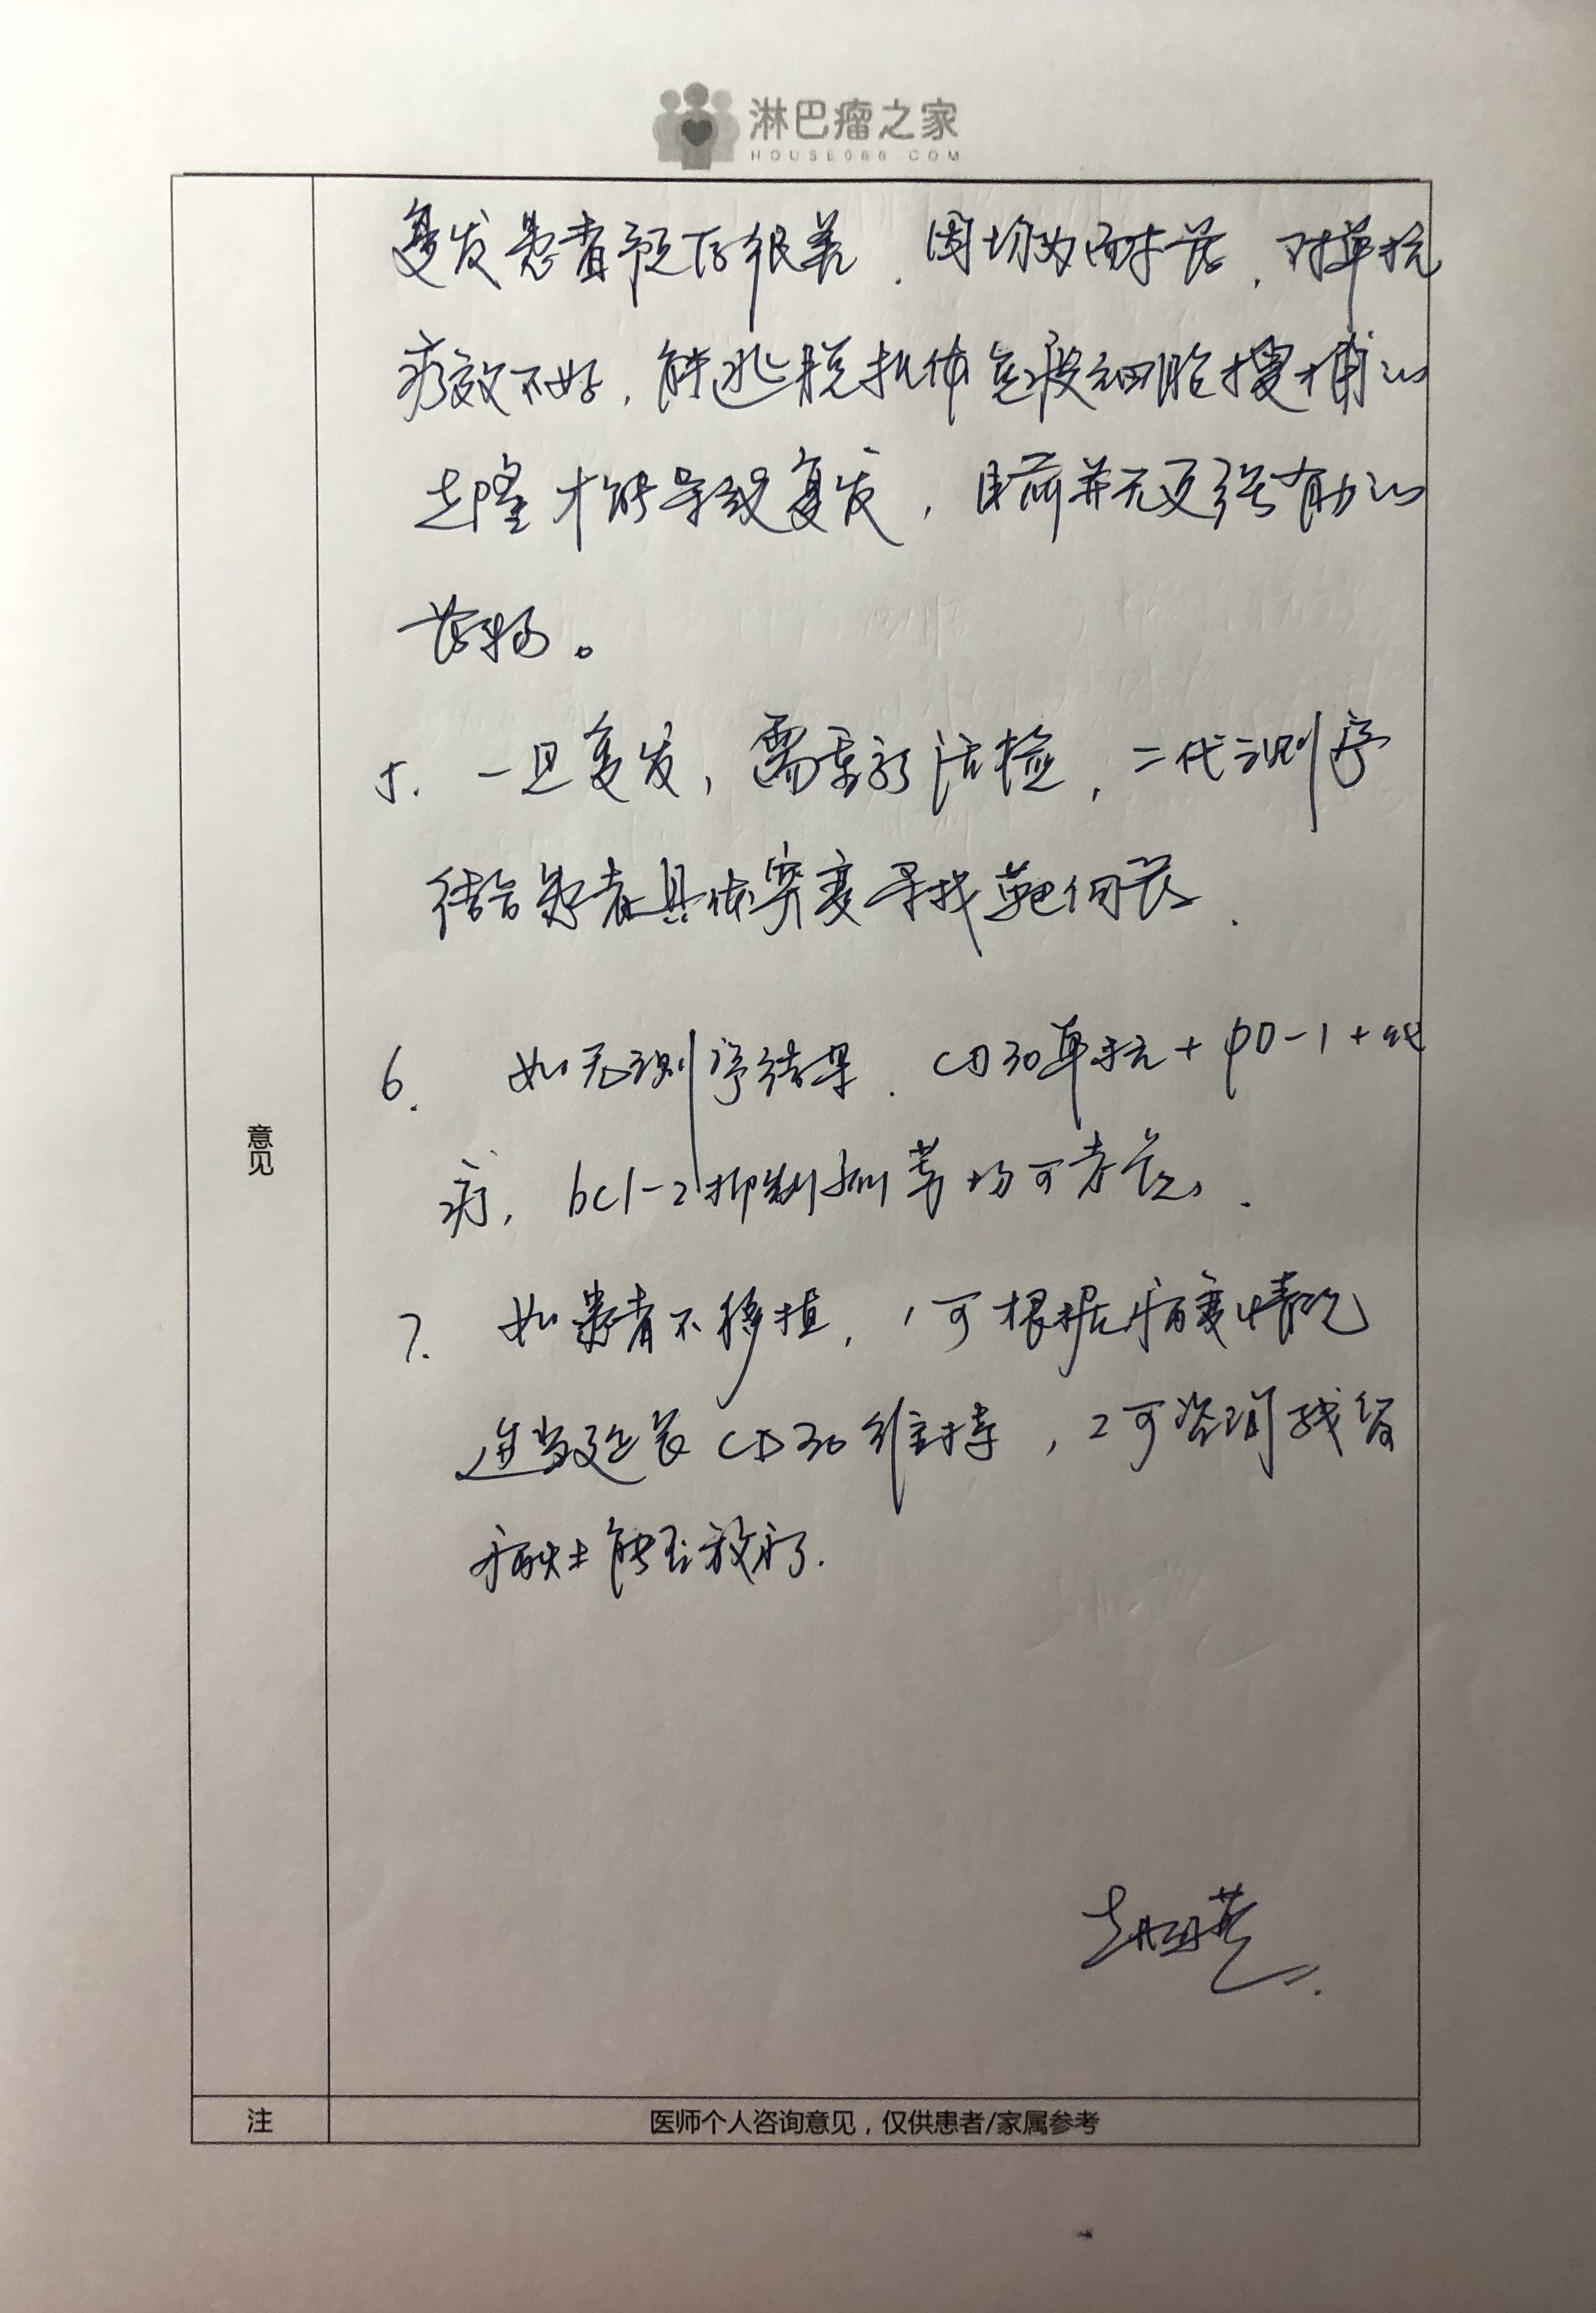 淋巴瘤之家
HOUSE086.COM
复发患者预后很差．因均为耐药，对单抗
疗效不好，能逃脱机体免疫细胞搜捕的
克隆才能导致复发，目前并无更强有力的
药物。
5. 一旦复发，需重新活检，二代测序
结合患者具体突变寻找靶向药．
6. 如无测序结果．CD30单抗+PD-1+化
疗，bcl-2抑制剂等均可考虑．
7. 如患者不移植，1可根据病变情况
适当延长CD30维持，2可咨询残留
病灶能否放疗．
意见
注
医师个人咨询意见，仅供患者/家属参考